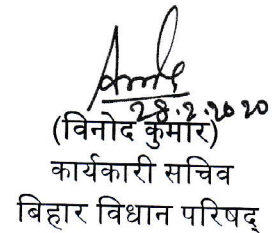 28.2.2020
(विनोद कुमार)
कार्यकारी सचिव
बिहार विधान परिषद्